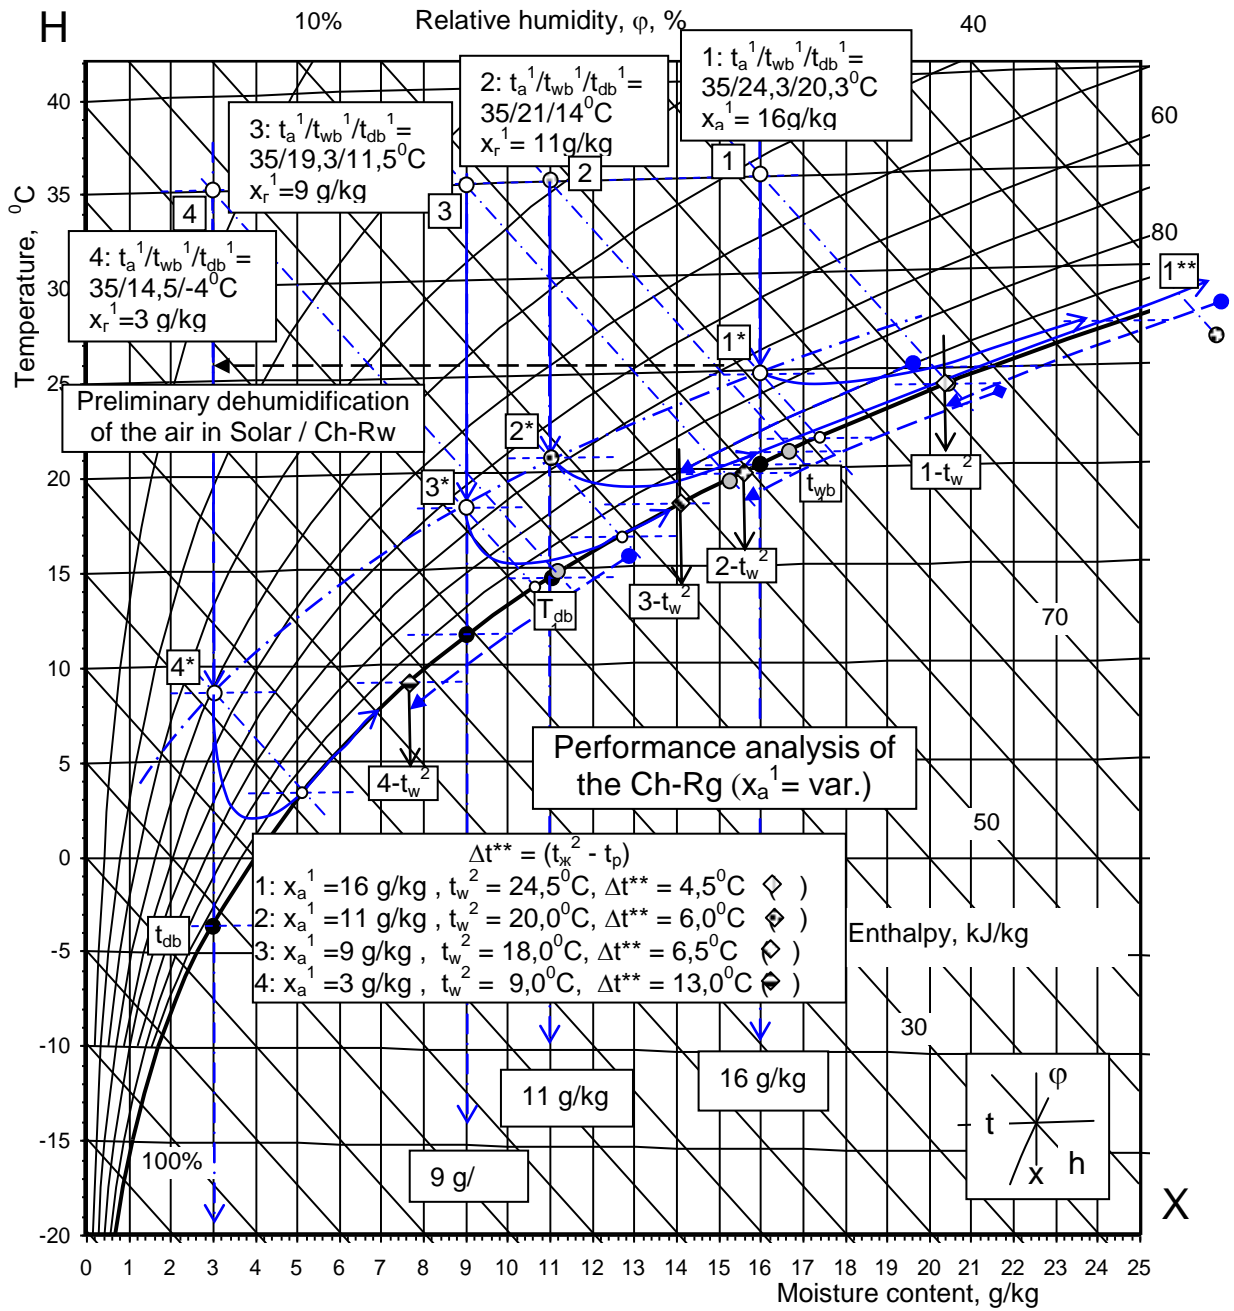 H
10%
Relative humidity, φ, %
40
1: ta¹/twb¹/tdb¹=
35/24,3/20,3⁰C
xa¹= 16g/kg
2: ta¹/twb¹/tdb¹=
35/21/14⁰C
xr¹= 11g/kg
3: ta¹/twb¹/tdb¹=
35/19,3/11,5⁰C
xr¹=9 g/kg
4: ta¹/twb¹/tdb¹=
35/14,5/-4⁰C
xr¹=3 g/kg
60
80
1
2
3
4
1**
1*
2*
3*
4*
Temperature, ⁰C
40
35
30
25
20
15
10
5
0
-5
-10
-15
-20
Preliminary dehumidification
of the air in Solar / Ch-Rw
twb
1-tw²
2-tw²
3-tw²
Tdb
4-tw²
70
Performance analysis of
the Ch-Rg (xa¹= var.)
50
Δt** = (tж² - tp)
1: xa¹ =16 g/kg , tw² = 24,5⁰C, Δt** = 4,5⁰C )
2: xa¹ =11 g/kg , tw² = 20,0⁰C, Δt** = 6,0⁰C ( )
3: xa¹ =9 g/kg , tw² = 18,0⁰C, Δt** = 6,5⁰C )
4: xa¹ =3 g/kg , tw² = 9,0⁰C, Δt** = 13,0⁰C ( )
tdb
Enthalpy, kJ/kg
30
16 g/kg
11 g/kg
9 g/
100%
φ
t
h
x
X
0 1 2 3 4 5 6 7 8 9 10 11 12 13 14 15 16 17 18 19 20 21 22 23 24 25
Moisture content, g/kg